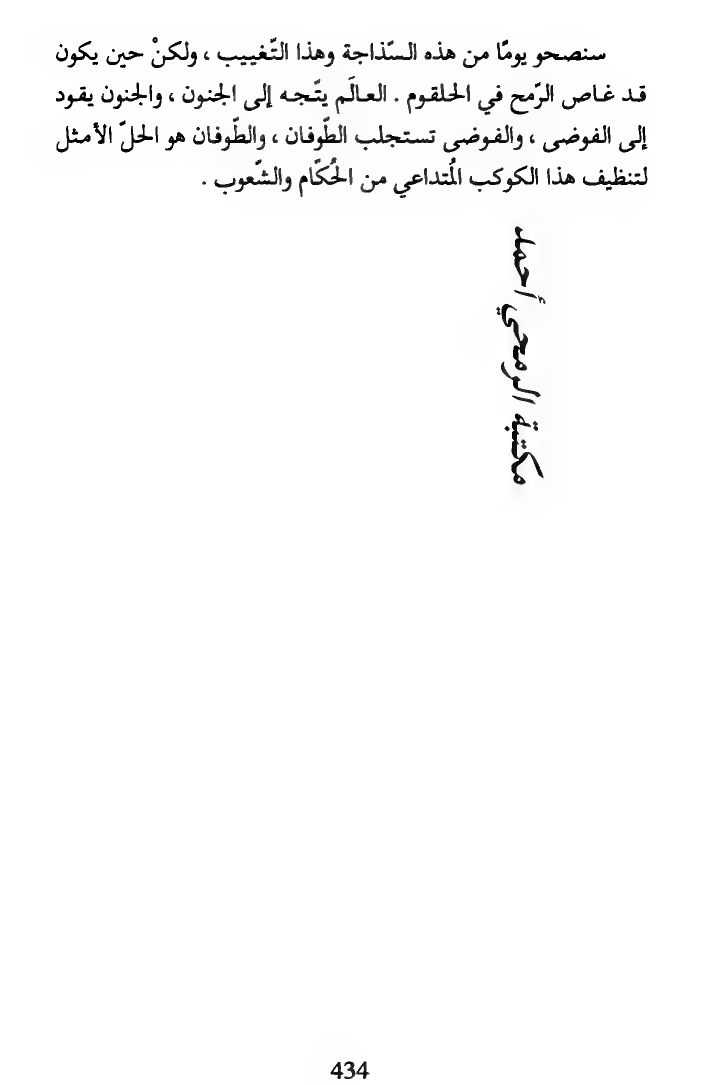 سنصحو يومًا من هذه السّذاجة وهذا التّغييب ، ولكنْ حين يكون
قد غاص الرّمح في الحلقوم . العالَم يتّجه إلى الجنون ، والجنون يقود
إلى الفوضى ، والفوضى تستجلب الطّوفان ، والطّوفان هو الحلّ الأمثل
لتنظيف هذا الكوكب المُتداعي من الحُكّام والشّعوب .
مكتبة الرمحي أحمد
434